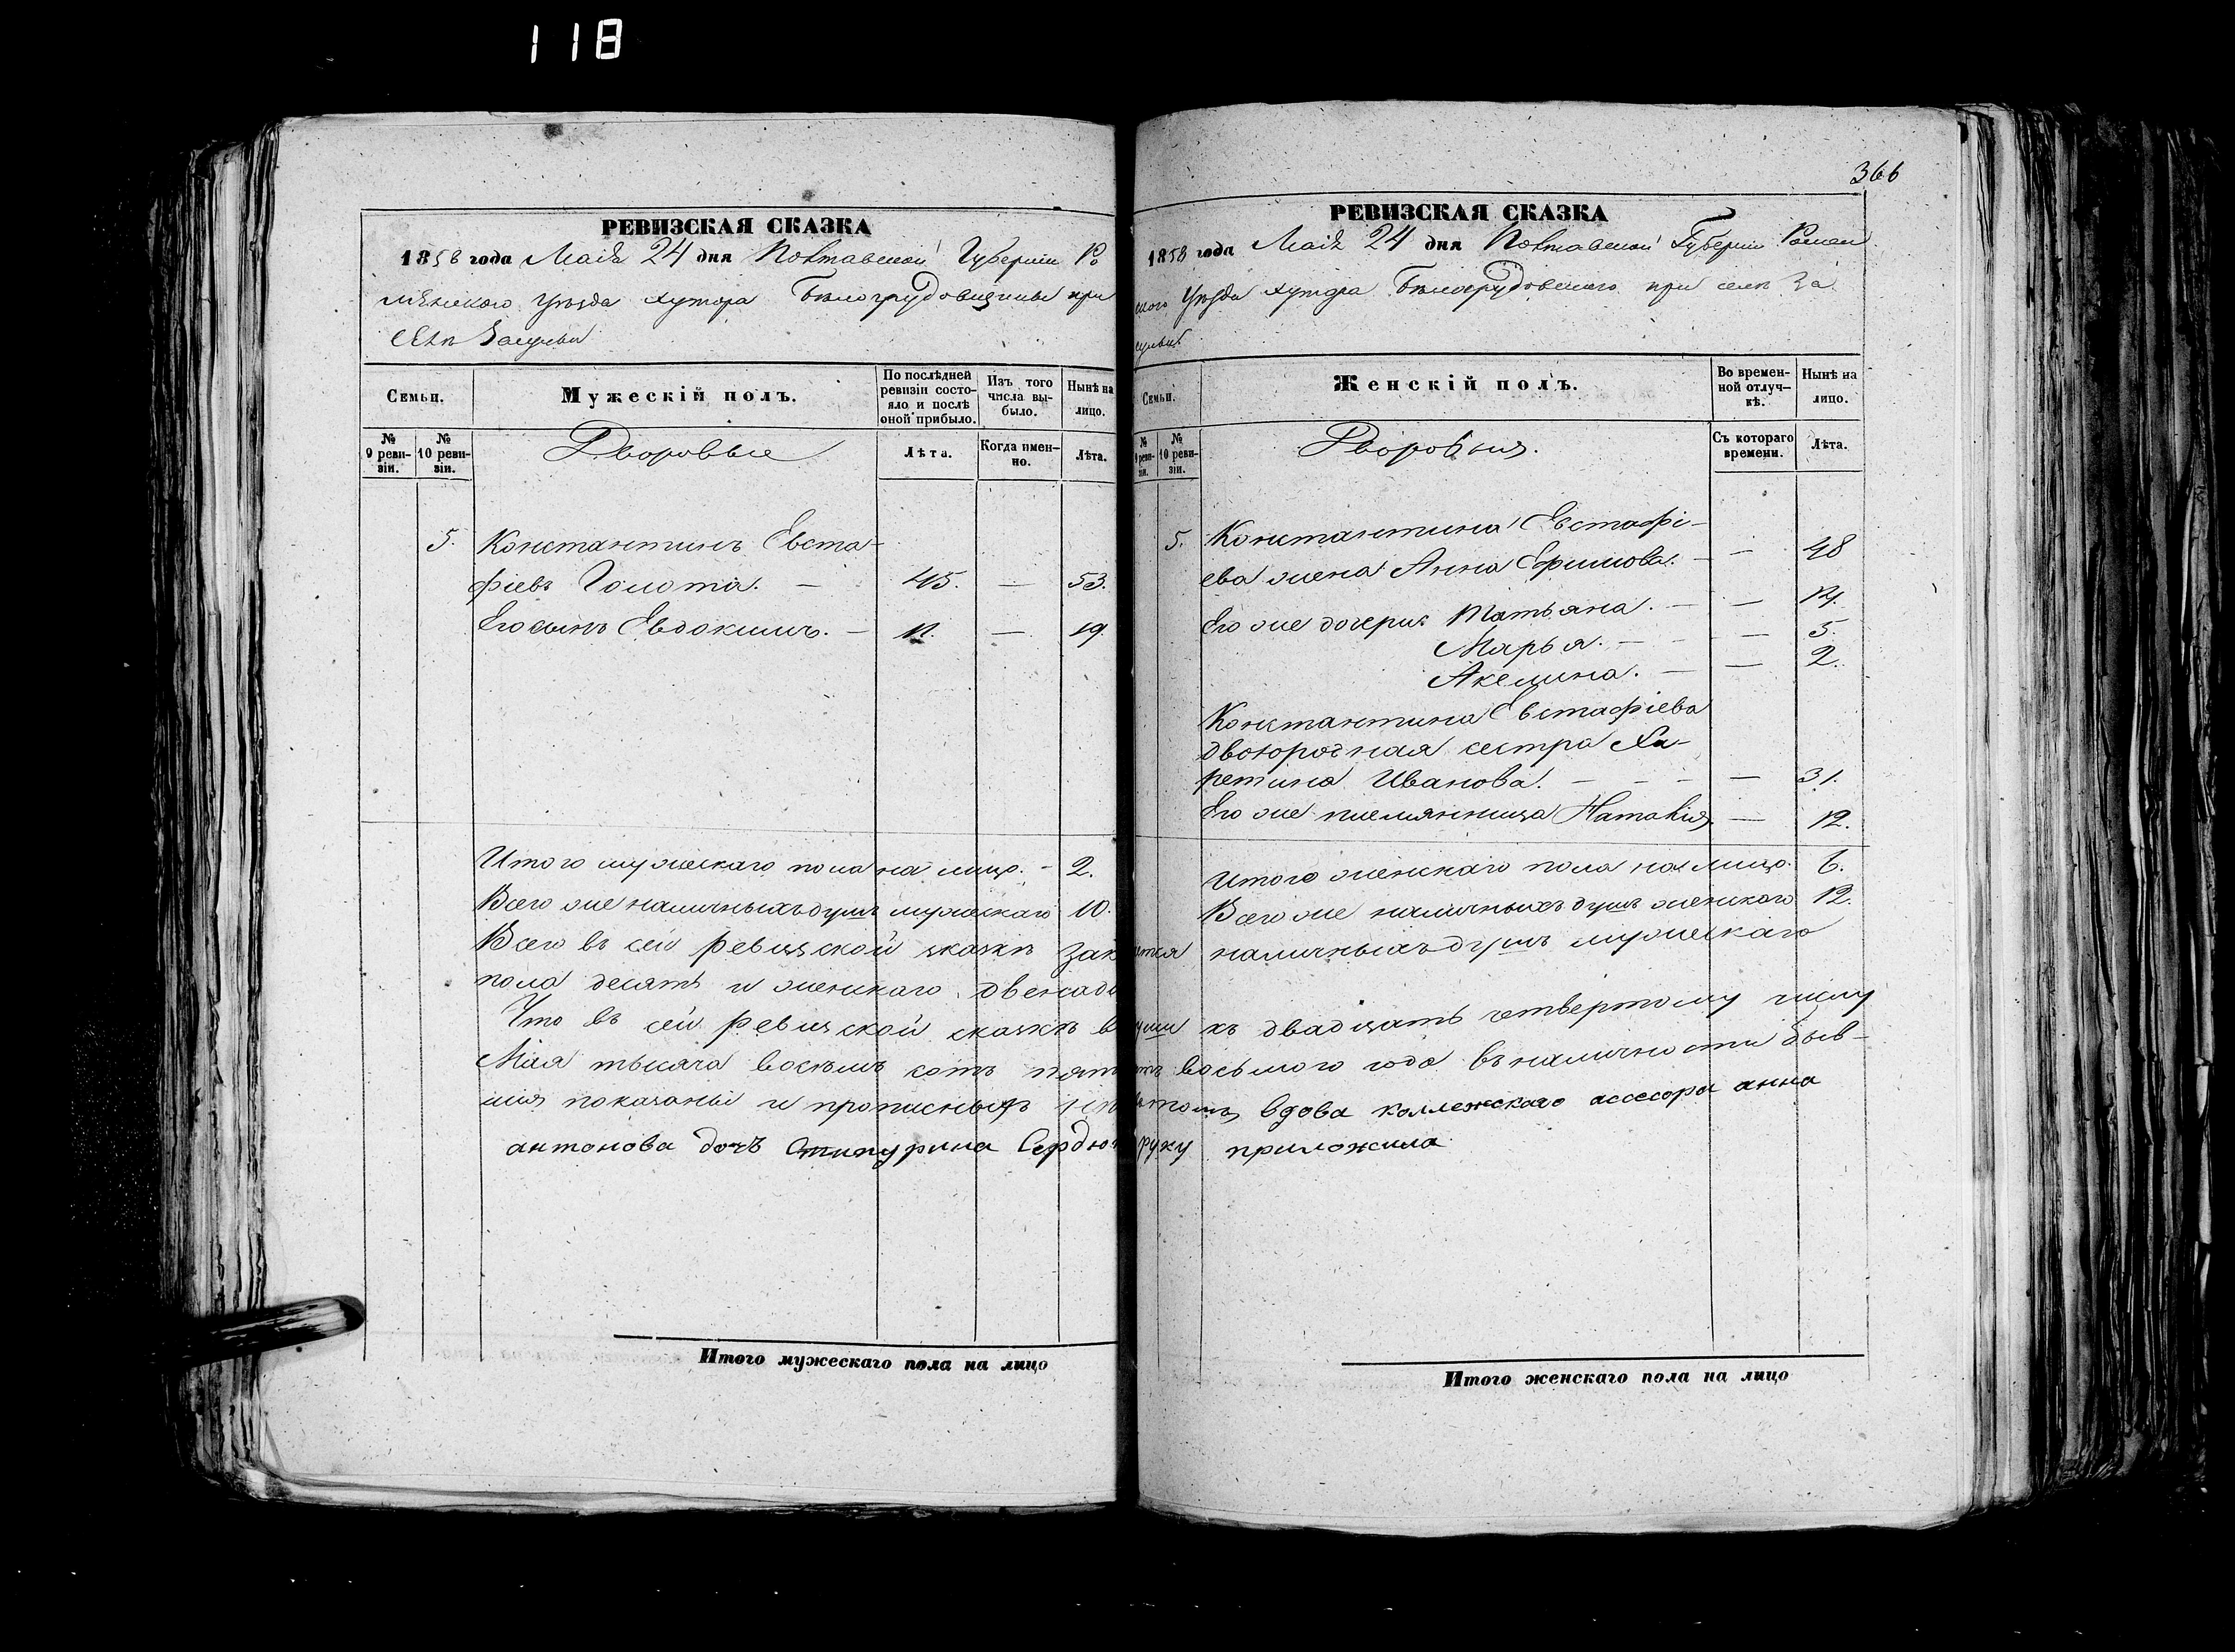 118
РЕВИЗСКАЯ СКАЗКА
1858 года Маія 24 дня Полтавской Губерніи Ро
менского Уѣзда хутора Бѣлогрудовщины при
селѣ Засульи
Семьи.
Мужескій полъ.
По послѣдней ревизіи состояло и послѣ оной прибыло.
Изъ того числа выбыло.
Нынѣ на лицо.
№ 9 ревизіи.
№ 10 ревизіи.
Дворовые
Лѣта.
Когда именно.
Лѣта.
5. Константинъ Евста-
фіевъ Голота. — 45. — 53.
Его сынъ Евдокимъ. — 11. — 19
Итого мужескаго пола на лицо. - 2.
Всего же наличныхъ душъ мужескаго 10.
Всего въ сей ревизской сказкѣ зак
пола десять и женскаго двенадц
Что въ сей ревизской сказкѣ в
Мая тысяча восемь сотъ пят
шія показаны и прописныхъ
антонова дочъ Сердюк
Итого мужескаго пола на лицо
366
РЕВИЗСКАЯ СКАЗКА
1858 года Маія 24 дня Полтавской Губерніи Ромен
ского Уѣзда хутора Бѣлогрудовского при селѣ За
сульи
Семьи.
Женскій полъ.
Во временной отлучкѣ.
Нынѣ на лицо.
№ 9 ревизіи.
№ 10 ревизіи.
Дворовыя.
Съ котораго времени.
Лѣта.
5. Константина Евстафі-
ева жена Анна Ефимова. — — 48
Его же дочери: Татьяна. — — 14.
Марья. — — 5.
Акелина. — — 2.
Константина Евстафіева
двоюродная сестра Ха-
ретина Иванова. — — — — 31.
Его же племянница Наталія — 12.
Итого женскаго пола на лицо. 6.
Всего же наличныхъ душъ женского 12.
ится наличныхъ душъ мужескаго
уши къ двадцать четвертому числу
тъ восьмого года въ наличности быв-
вдова коллежскаго ассесора анна
руку приложила
Итого женскаго пола на лицо